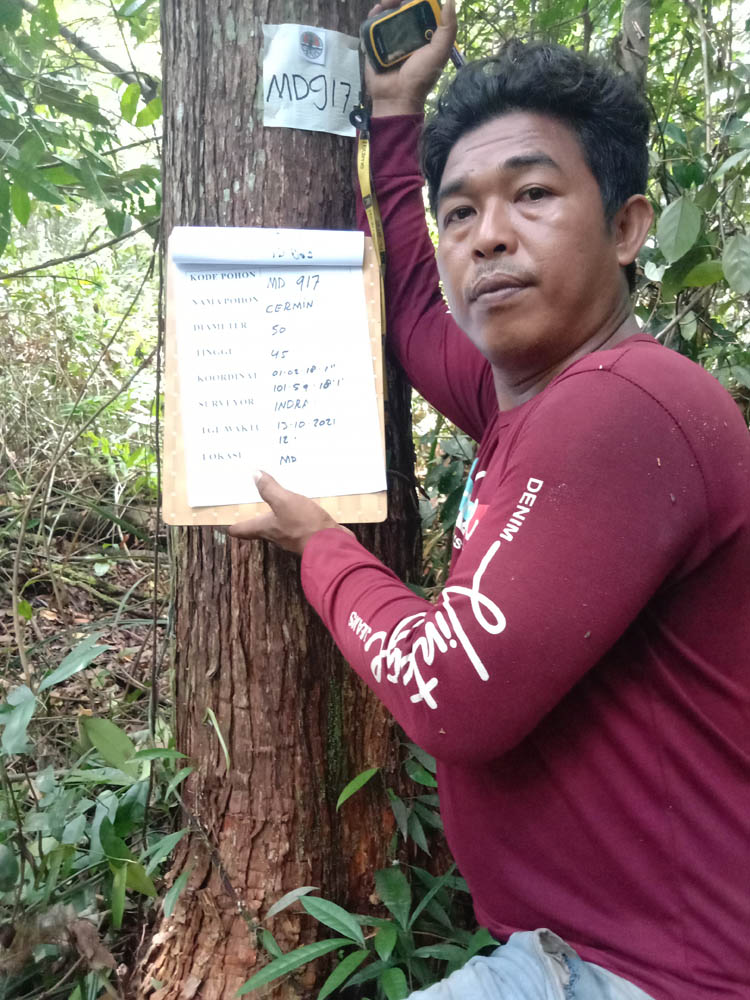 MD917
KODE POHON MD 917
NAMA POHON CERMIN
DIAMETER 50
TINGGI 45
KOORDINAT 01.02 18.1"
101.59.18'1'
SURVEYOR INDRA
TGL/WAKTU 13.10.2021
12.
LOKASI MD
DENIM
Vintage
JEANS